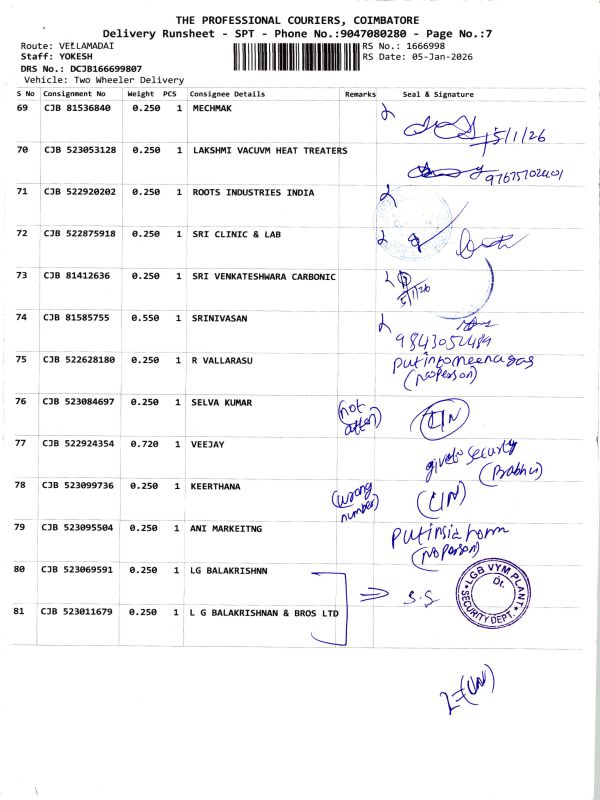 THE PROFESSIONAL COURIERS, COIMBATORE
Delivery Runsheet - SPT - Phone No.:9047080280 - Page No.:7
Route: VELLAMADAI
Staff: YOKESH
DRS No.: DCJB166699807
Vehicle: Two Wheeler Delivery
RS No.: 1666998
RS Date: 05-Jan-2026
S No Consignment No Weight PCS Consignee Details Remarks Seal & Signature
69 CJB 81536840 0.250 1 MECHMAK
5/1/26
70 CJB 523053128 0.250 1 LAKSHMI VACUVM HEAT TREATERS
71 CJB 522920202 0.250 1 ROOTS INDUSTRIES INDIA
72 CJB 522875918 0.250 1 SRI CLINIC & LAB
73 CJB 81412636 0.250 1 SRI VENKATESHWARA CARBONIC
5/1/26
74 CJB 81585755 0.550 1 SRINIVASAN
9843052489
75 CJB 522628180 0.250 1 R VALLARASU
put into meena gas
(no person)
76 CJB 523084697 0.250 1 SELVA KUMAR
(not
atten)
77 CJB 522924354 0.720 1 VEEJAY
give to security
(Prabhu)
78 CJB 523099736 0.250 1 KEERTHANA
(wrong
number)
79 CJB 523095504 0.250 1 ANI MARKEITNG
(no person)
80 CJB 523069591 0.250 1 LG BALAKRISHNN
S.S
LGB VYM.PLANT
Dt.
SECURITY DEPT.
81 CJB 523011679 0.250 1 L G BALAKRISHNAN & BROS LTD